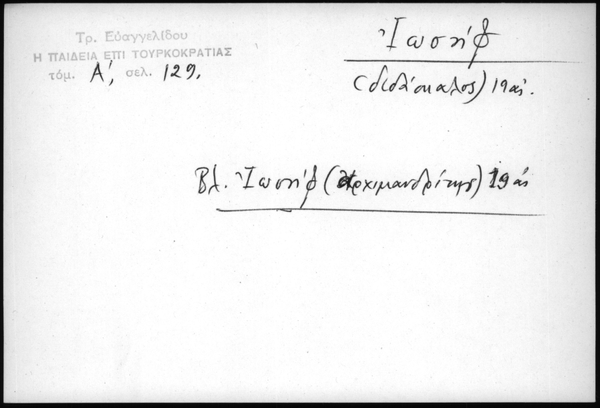 Τρ. Εὐαγγελίδου
Η ΠΑΙΔΕΙΑ ΕΠΙ ΤΟΥΡΚΟΚΡΑΤΙΑΣ
τόμ. Α', σελ. 129.
Ἰωσήφ
(διδάσκαλος) 19 αἰ.
Βλ. Ἰωσήφ (ἀρχιμανδρίτης) 19 αἰ